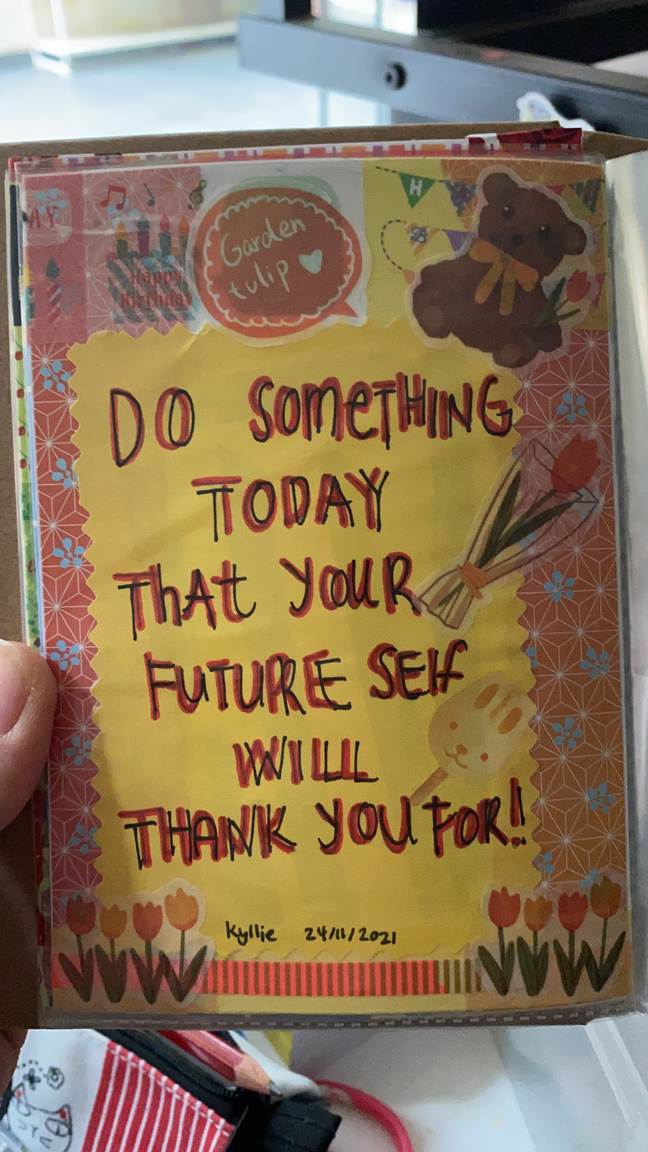 AY
Happy
Birthday
Garden
tulip
H
DO SOMETHING
TODAY
THAt YOUR
FUTURE SElf
WILL
THANK YOU FOR!!
Kyllie 24/11/2021